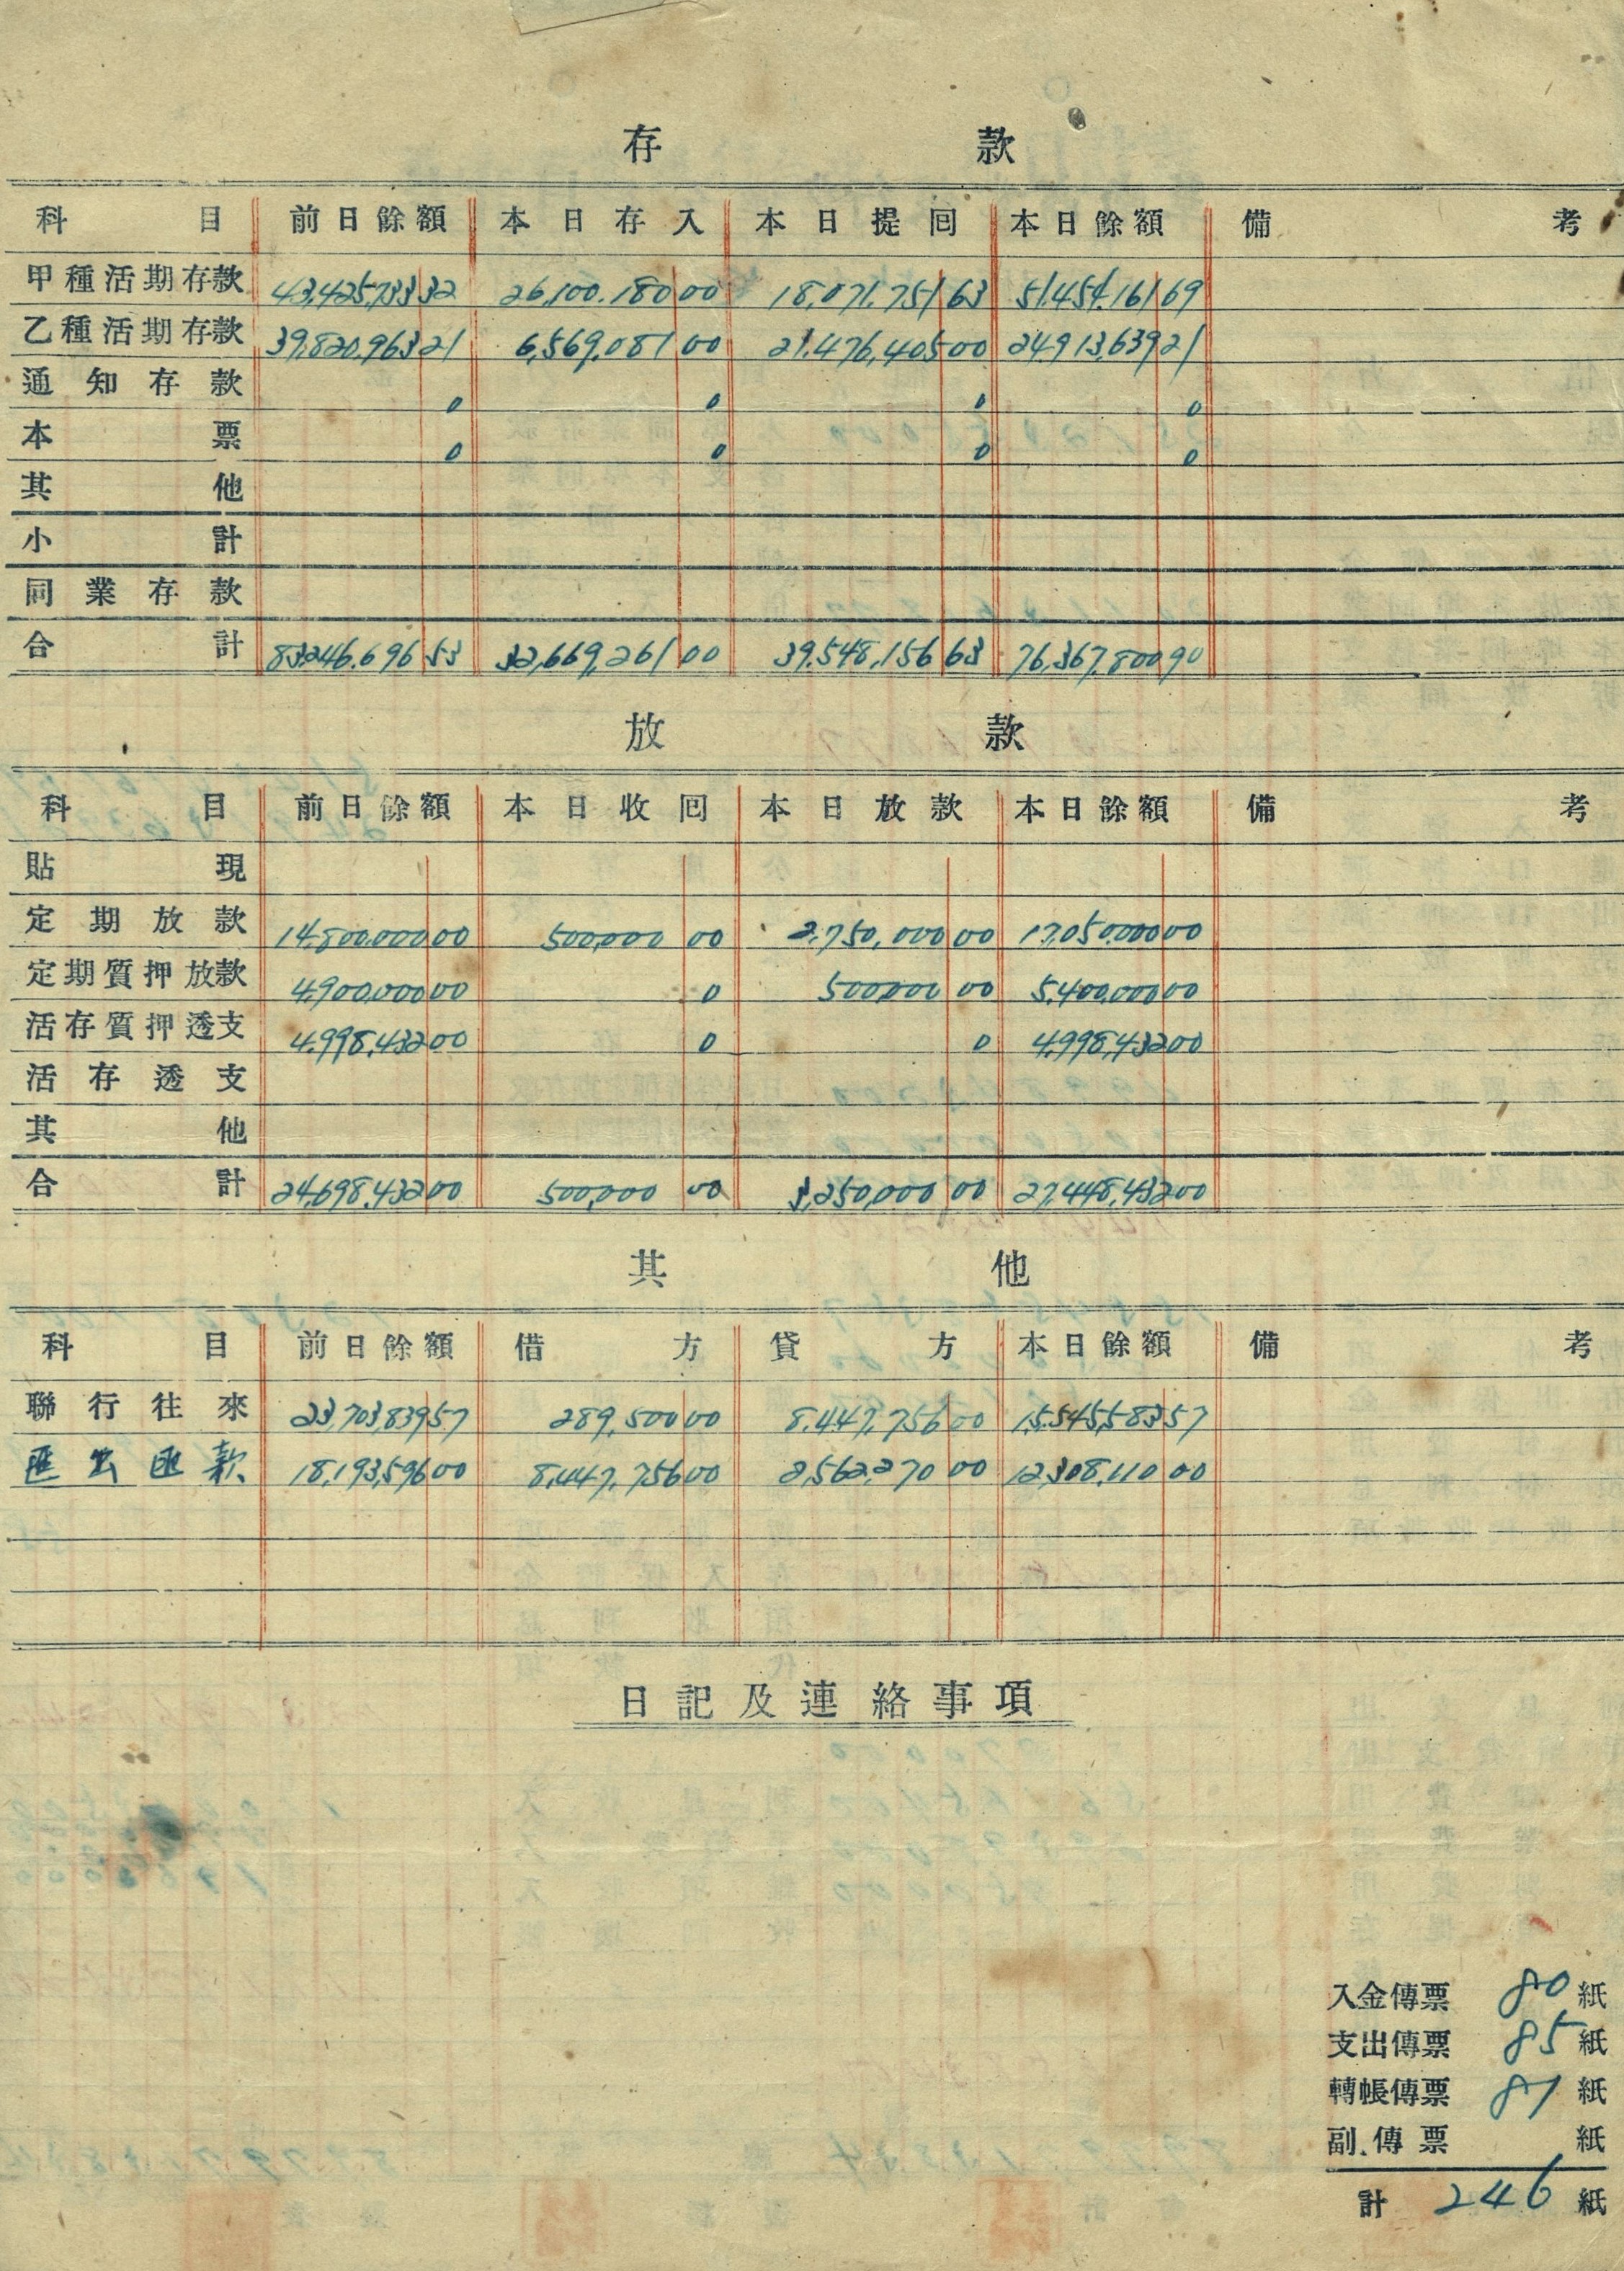 存款
科目 前日餘額 本日存入 本日提囘 本日餘額 備考
甲種活期存款 43,425,733 32 26,100.180 00 18,071,751 63 51,454,161 69
乙種活期存款 39,820,963 21 6,569,081 00 21,476,405 00 24,913,639 21
通知存款 0 0 0 0
本票 0 0 0 0
其他
小計
同業存款
合計 83,246,696 53 32,669,261 00 39,548,156 63 76,367,800 90
放款
科目 前日餘額 本日收囘 本日放款 本日餘額 備考
貼現
定期放款 14,800,000 00 500,000 00 2,750,000 00 17,050,000 00
定期質押放款 4,900,000 00 0 500,000 00 5,400,000 00
活存質押透支 4,998,432 00 0 0 4,998,432 00
活存透支
其他
合計 24,698,432 00 500,000 00 3,250,000 00 27,448,432 00
其他
科目 前日餘額 借方 貸方 本日餘額 備考
聯行往來 23,703,839 57 289,500 00 8,447,756 00 15,545,583 57
匯出匯款 18,193,596 00 8,447,756 00 2,562,270 00 12,308,110 00
日記及連絡事項
入金傳票 80 紙
支出傳票 85 紙
轉帳傳票 81 紙
副傳票 紙
計 246 紙